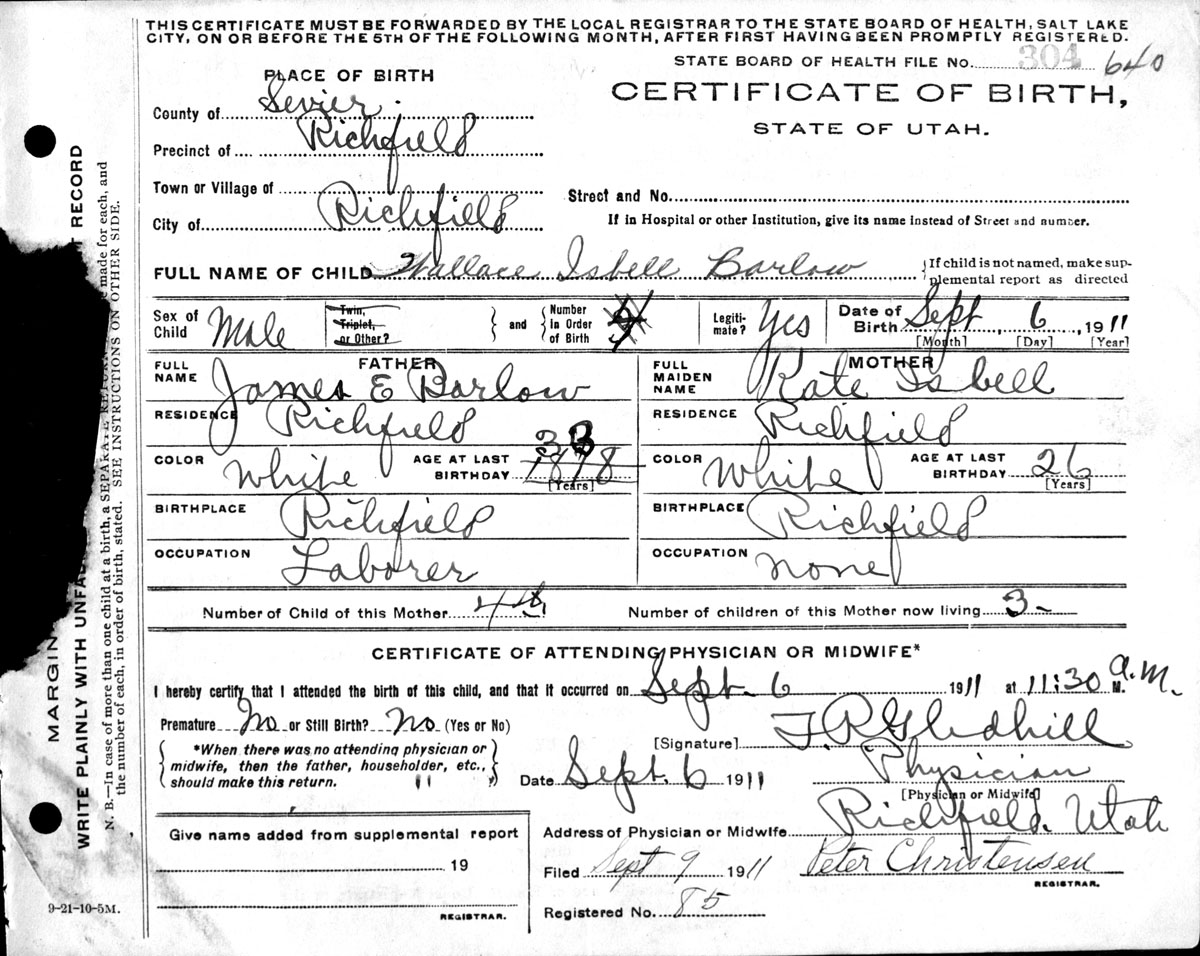 THIS CERTIFICATE MUST BE FORWARDED BY THE LOCAL REGISTRAR TO THE STATE BOARD OF HEALTH, SALT LAKE
CITY, ON OR BEFORE THE 5TH OF THE FOLLOWING MONTH, AFTER FIRST HAVING BEEN PROMPTLY REGISTERED.
STATE BOARD OF HEALTH FILE NO. 304 640
PLACE OF BIRTH
CERTIFICATE OF BIRTH,
STATE OF UTAH.
County of Sevier.
Precinct of Richfield
Town or Village of
Street and No.
City of Richfield
If in Hospital or other Institution, give its name instead of Street and number.
FULL NAME OF CHILD Wallace Isbell Barlow {If child is not named, make sup-
plemental report as directed
Sex of Child Male Twin, Triplet, or Other? } and { Number in Order of Birth Legiti-mate? Yes Date of Birth Sept 6, 1911
[Month] [Day] [Year]
FATHER MOTHER
FULL NAME James E Barlow FULL MAIDEN NAME Kate Isbell
RESIDENCE Richfield RESIDENCE Richfield
COLOR White AGE AT LAST BIRTHDAY 33 1878 [Years] COLOR White AGE AT LAST BIRTHDAY 26 [Years]
BIRTHPLACE Richfield BIRTHPLACE Richfield
OCCUPATION Laborer OCCUPATION none
Number of Child of this Mother 4th Number of children of this Mother now living 3-
CERTIFICATE OF ATTENDING PHYSICIAN OR MIDWIFE*
I hereby certify that I attended the birth of this child, and that it occurred on Sept. 6 1911 at 11:30 a.m. M.
Premature No or Still Birth? No (Yes or No)
[Signature] T.R. Gledhill
*When there was no attending physician or
midwife, then the father, householder, etc.,
should make this return.
Date Sept. 6 1911
Physician
[Physician or Midwife]
Address of Physician or Midwife Richfield. Utah
Give name added from supplemental report
19
REGISTRAR.
Filed Sept 9 1911 Peter Christensen
REGISTRAR.
Registered No. 85
9-21-10-5M.
MARGIN
WRITE PLAINLY WITH RECORD
N. B.—In case of more than one child at a birth, a SEPARATE RETURN made for each, and
the number of each, in order of birth, stated. SEE INSTRUCTIONS ON OTHER SIDE.